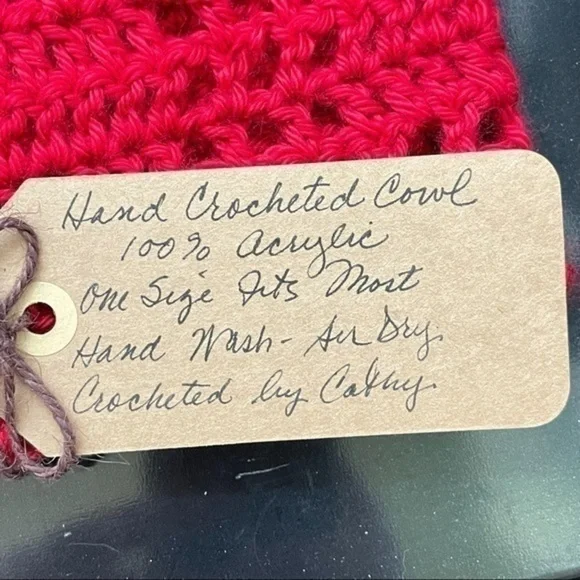 Hand Crocheted Cowl
100% Acrylic
One Size Fits Most
Hand Wash - Air Dry
Crocheted by Cathy